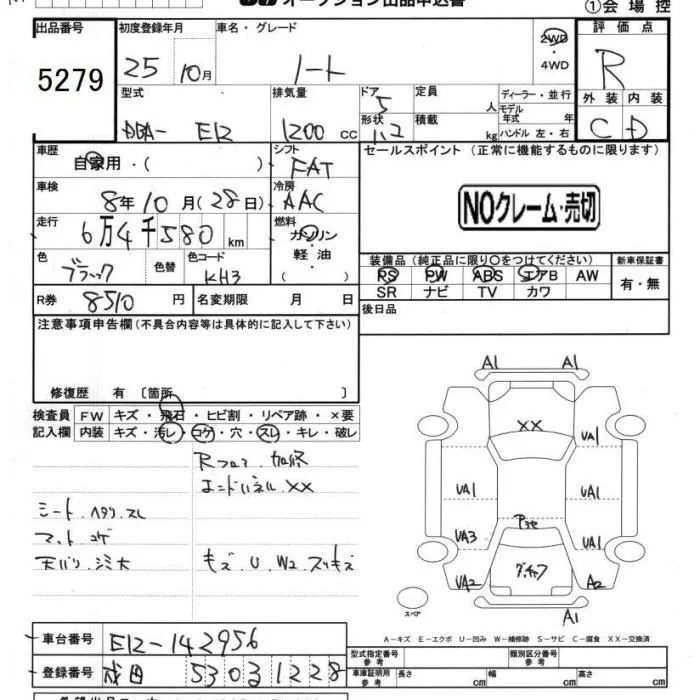 オークション出品申込書
①会場控
出品番号 初度登録年月 車名・グレード 評価点
5279
25 10月 ノート 2WD R
4WD
型式 排気量 ドア 定員 ディーラー・並行 外装 内装
5 人 モデル年式 年
DBA- E12 1200 cc 形状 積載 kg ハンドル 左・右 C D
車歴 シフト セールスポイント (正常に機能するものに限ります)
自家用・( ) FAT
車検 冷房
8年10月(28日) AAC NOクレーム・売切
走行 燃料
6万4千580km ガソリン
色 色替 色コード 軽油 装備品(純正品に限り〇をつけてください) 新車保証書
ブラック KH3 ( ) PS PW ABS エアB AW 有・無
SR ナビ TV カワ
R券 8510円 名変期限 月 日 後日品
注意事項申告欄(不具合内容等は具体的に記入して下さい)
修復歴 有 〔箇所 〕
検査員 FW キズ・飛石・ヒビ割・リペア跡・×要
記入欄 内装 キズ・汚レ・コゲ・穴・スレ・キレ・破レ
Rフロア 加修
エンドパネル XX
シート ヘタリ スレ
マット コゲ
天バリ シミ大
キズ U W2 スリキズ
A1 A1
XX
UA1
UA1 UA1
UA3 UA1
UA2 A2
A1
スペア
A-キズ E-エクボ U-凹み W-補修跡 S-サビ C-腐食 XX-交換済
車台番号 E12-142956
型式指定番号 参考 類別区分番号 参考
登録番号 成田 530 す 1228
車庫証明用 参考 長さ cm 幅 cm 高さ cm